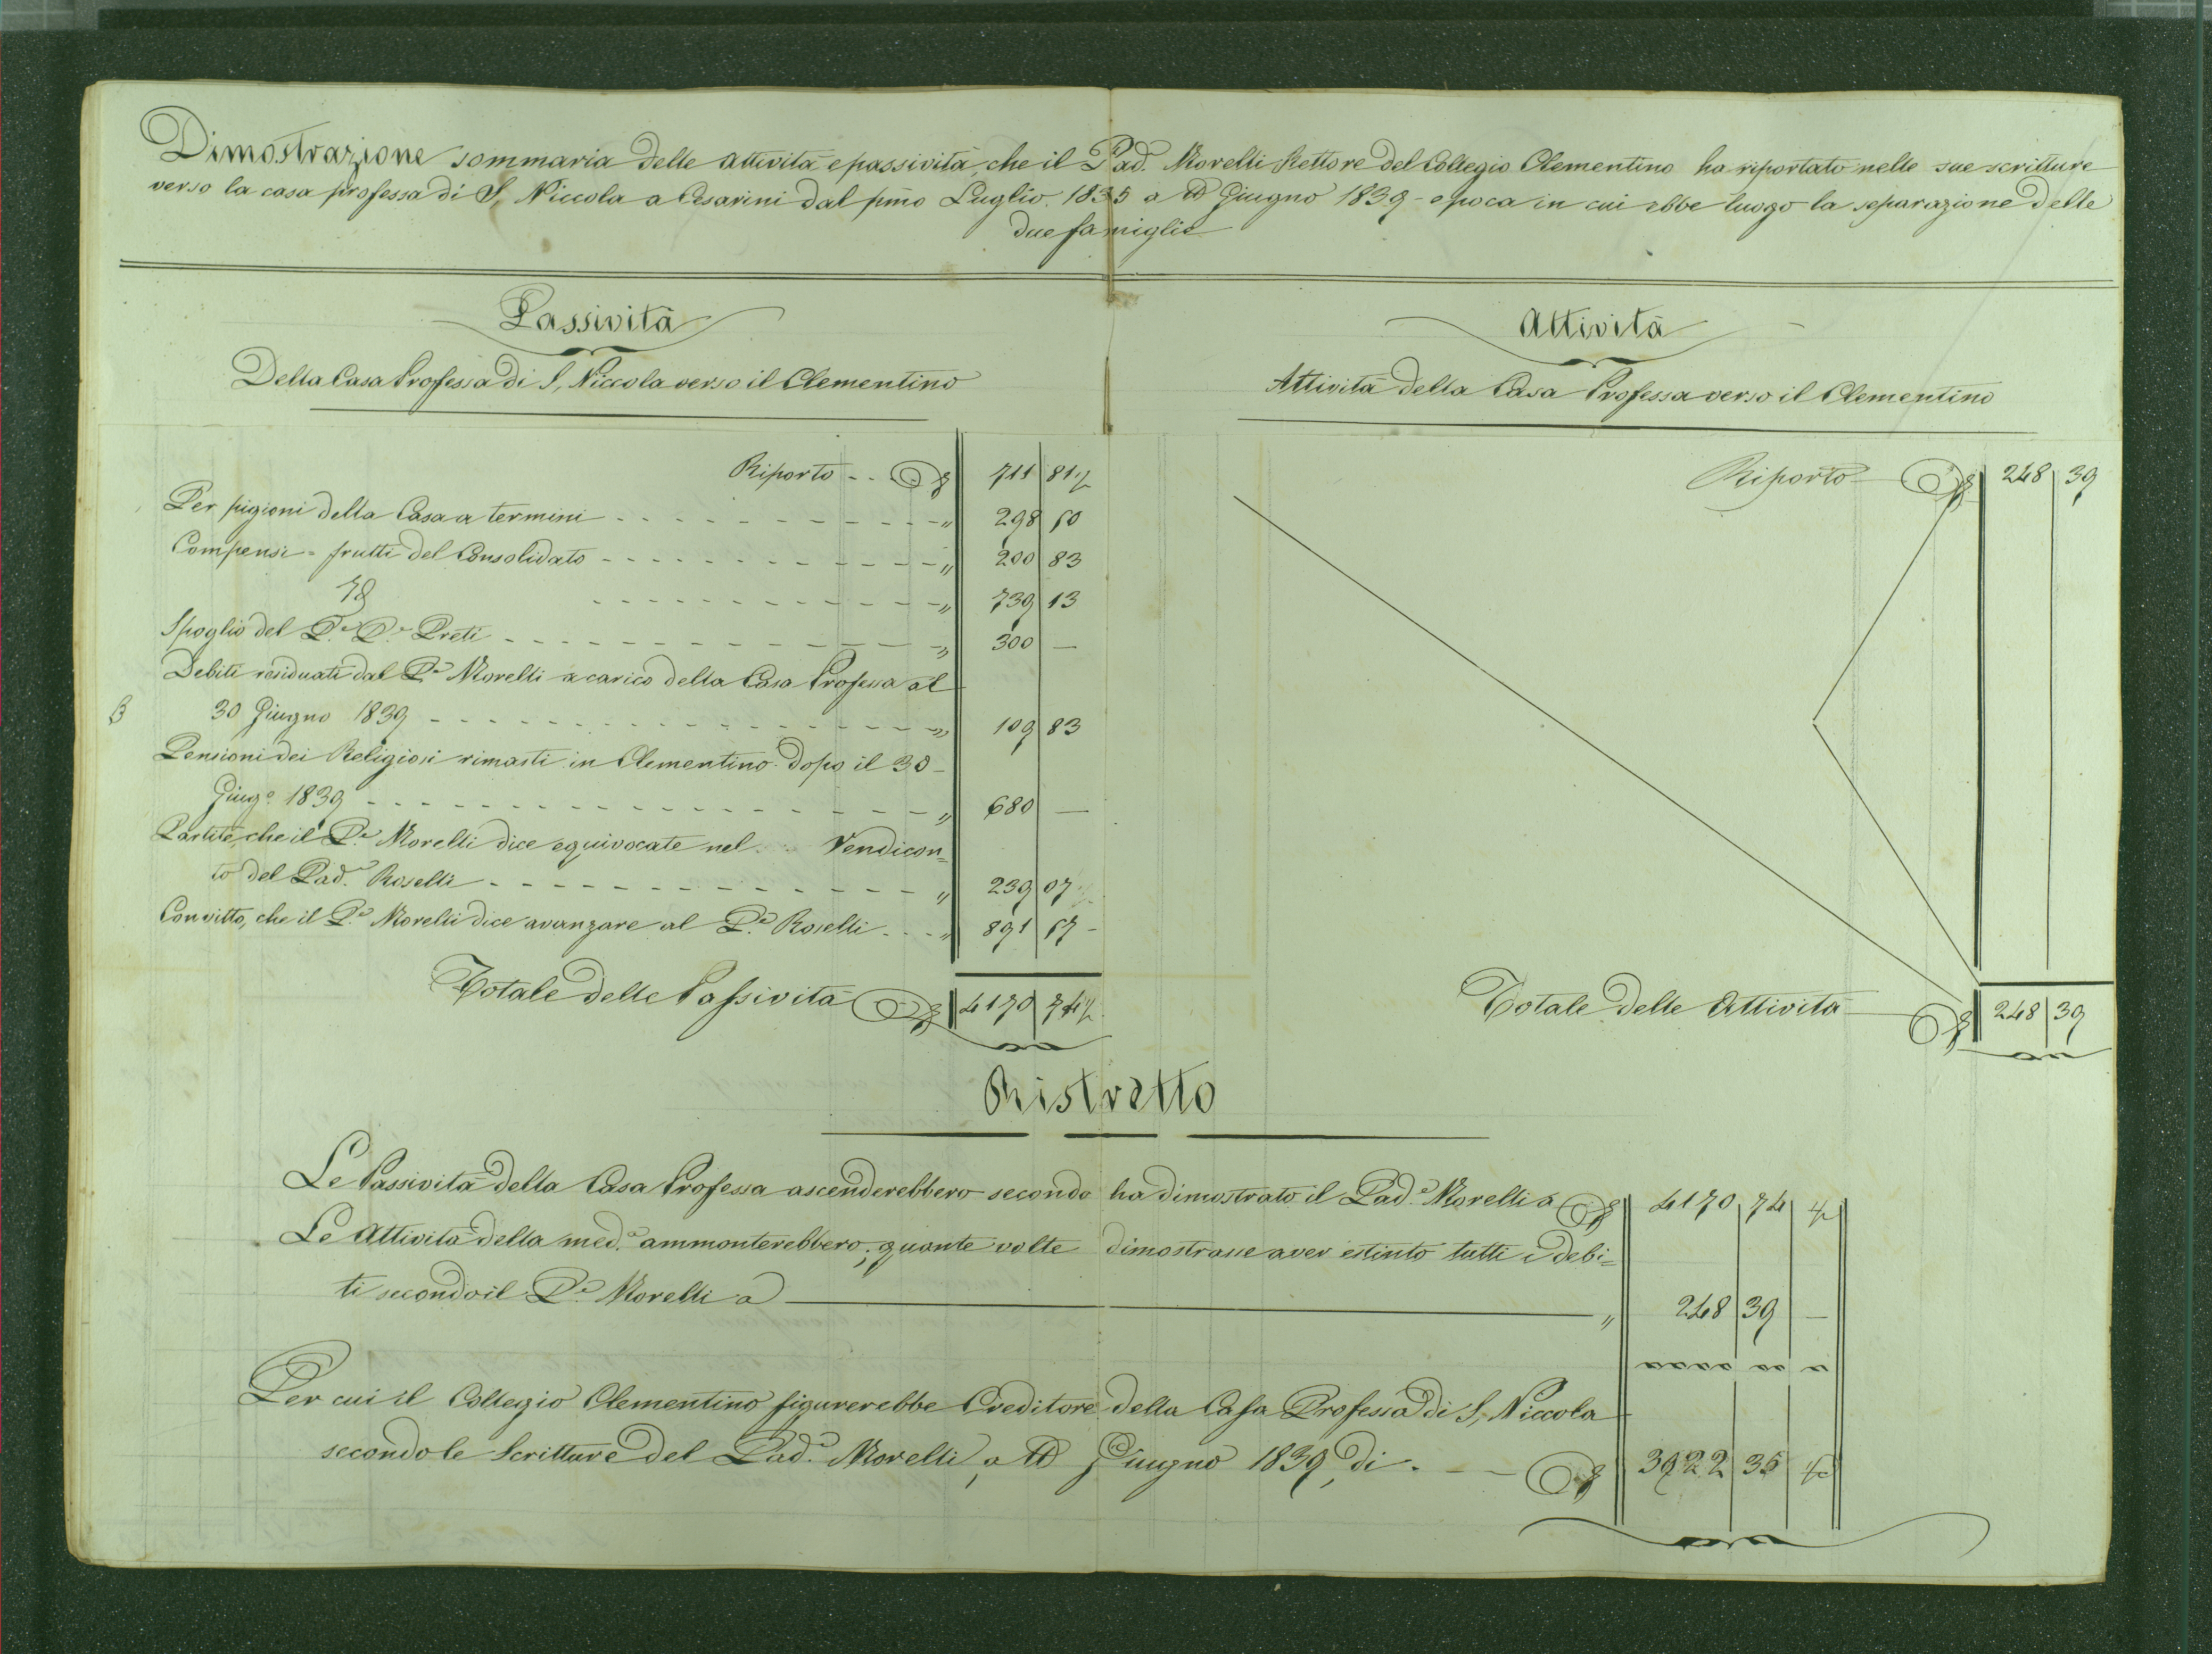 Dimostrazione sommaria delle attività e passività, che il Pad. Morelli Rettore del Collegio Clementino ha riportato nelle sue scritture
verso la casa professa di S. Niccola a Cesarini dal pmo Luglio 1835 a Giugno 1839 - epoca in cui ebbe luogo la separazione delle
due famiglie
Passività
Della Casa Professa di S. Niccola verso il Clementino
Riporto 711 81 ½
Per pigioni della Casa a termini 298 60
Compensi = frutti del Consolidato 200 83
Id 739 13
Spoglio del P.e D.e Preti 300 —
Debiti residuati dal P.e Morelli a carico della Casa Professa al
B 30 Giugno 1839 109 83
Pensioni dei Religiosi rimasti in Clementino dopo il 30
Giug.o 1839 680 —
Partite, che il P.e Morelli dice equivocate nel Rendicon=
to del Pad.e Roselli 239 07
Convitto, che il P.e Morelli dice avanzare al P.e Roselli 891 67 -
Totale delle Passività 4170 74 ½
Attività
Attività della Casa Professa verso il Clementino
Riporto 248 39
Totale delle Attività 248 39
Ristretto
Le Passività della Casa Professa ascenderebbero secondo ha dimostrato il Pad.e Morelli a 4170 74 ½
Le Attività della med.a ammonterebbero, quante volte dimostrasse aver estinto tutti i debi=
ti secondo il P.e Morelli a 248 39 —
Per cui il Collegio Clementino figurerebbe Creditore della Casa Professa di S. Niccola
secondo le Scritture del Pad.e Morelli, a Giugno 1839, di 3922 35 ½